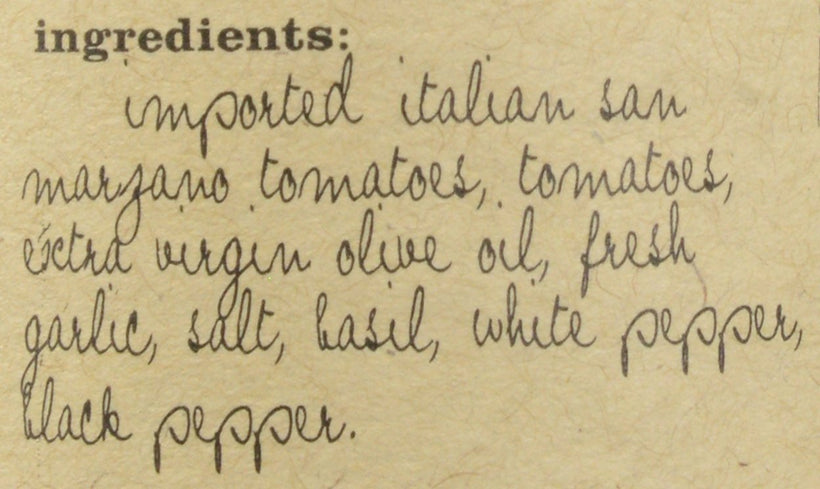 ingredients:
imported italian san
marzano tomatoes, tomatoes,
extra virgin olive oil, fresh
garlic, salt, basil, white pepper,
black pepper.